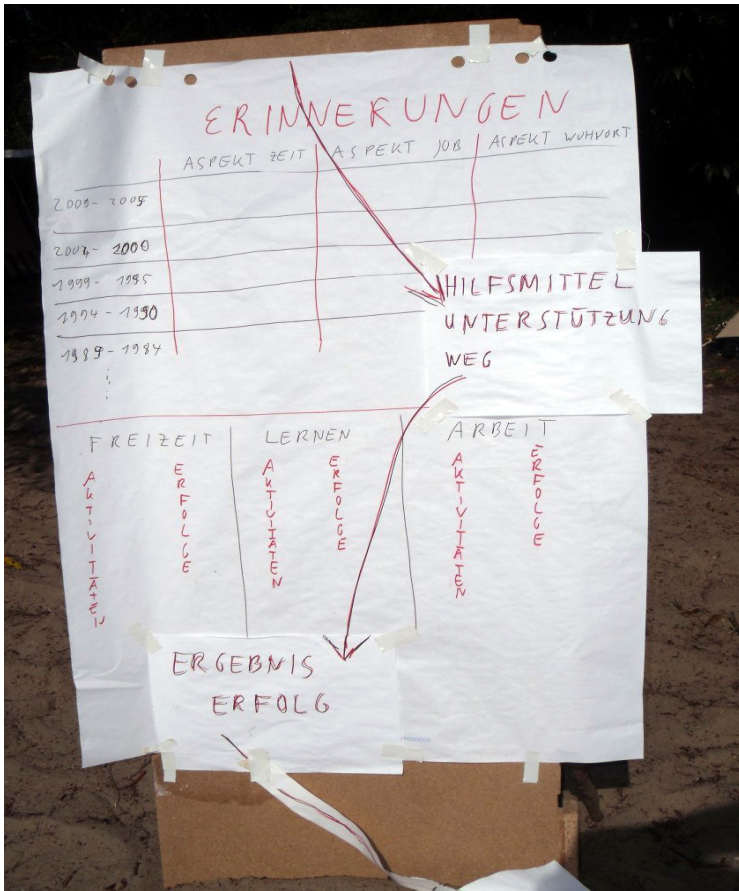 ERINNERUNGEN
ASPEKT ZEIT
ASPEKT JOB
ASPEKT WOHNORT
2009 - 2005
2004 - 2000
1999 - 1995
1994 - 1990
1989 - 1984
HILFSMITTEL
UNTERSTÜTZUNG
WEG
FREIZEIT
LERNEN
ARBEIT
AKTIVITÄTEN
ERFOLGE
AKTIVITÄTEN
ERFOLGE
AKTIVITÄTEN
ERFOLGE
ERGEBNIS
ERFOLG